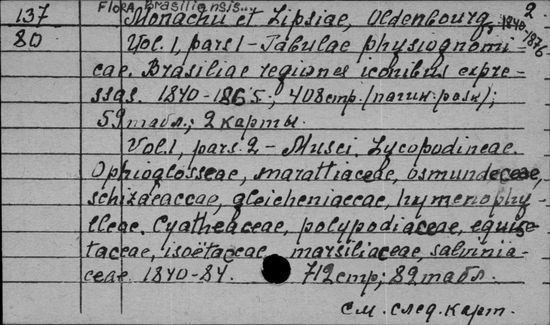 FLORA Brasiliensis... 2
137 Monachii et Lipsiae, Oldenbourg, 1840-1876
80 Vol. 1, pars 1 - Tabulae physiognomi-
cae. Brasiliae regiones iconibus expre-
ssas. 1840-1865; 408 стр. (пагин. разн.);
59 табл.; 2 карты.
Vol. 1, pars. 2 - Musci. Lycopodineae.
Ophioglosseae, marattiaceae, osmundeceae,
schizaeaccae, gleicheniaceae, hymenophy-
lleae. Cyatheaceae, polypodiaceae, equise-
taceae, isoëtaceae, marsiliaceae, salvinia-
ceae. 1840-84. 712 стр; 82 табл.
см. след. карт.